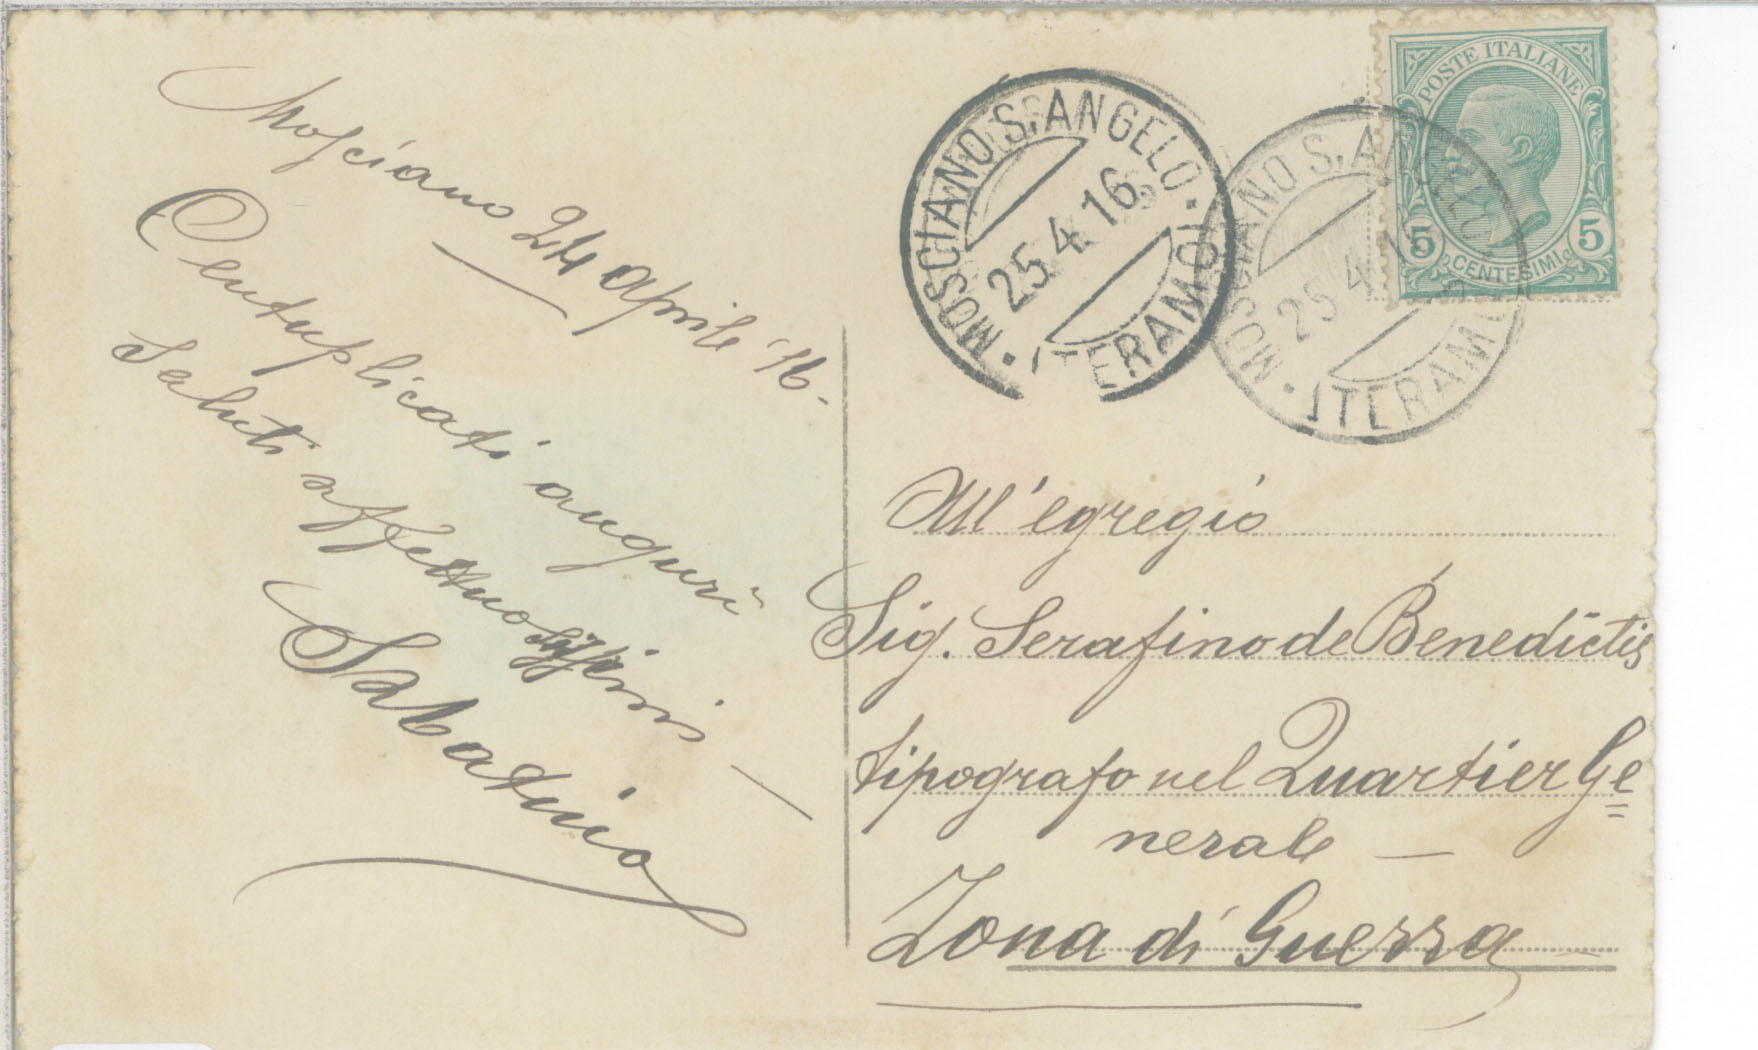 Mosciano 24 aprile '16 -
Centuplicati auguri
Saluti affettuosissimi -
Sabatino
MOSCIANO S. ANGELO
25.4.16
(TERAMO)
MOSCIANO S. ANGELO
25.4.16
(TERAMO)
POSTE ITALIANE
5 5
CENTESIMI
All'egregio
Sig. Serafino de Benedictis
tipografo nel Quartier Ge=
nerale —
Zona di Guerra